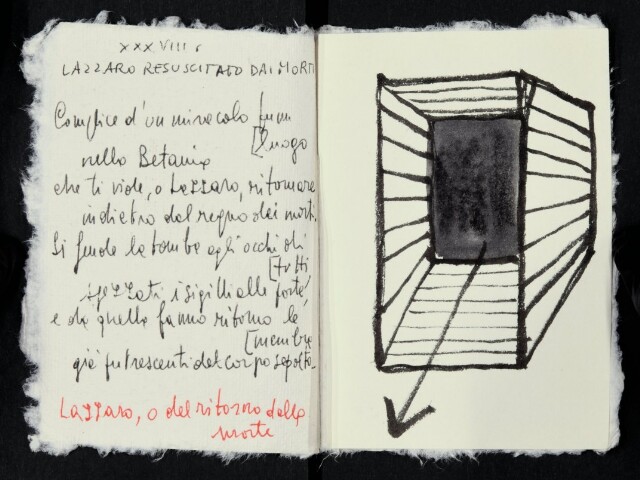 XXXVIII r
LAZZARO RESUSCITATO DAI MORTI
Complice d'un miracolo fu un
[luogo
nella Betania
che ti vide, o Lazzaro, ritornare
indietro dal regno dei morti.
Si fende la tomba agli occhi di
[tutti,
spezzati i sigilli alle porte,
e da quella fanno ritorno le
[membra
già putrescenti del corpo sepolto.
Lazzaro, o del ritorno dalla
morte